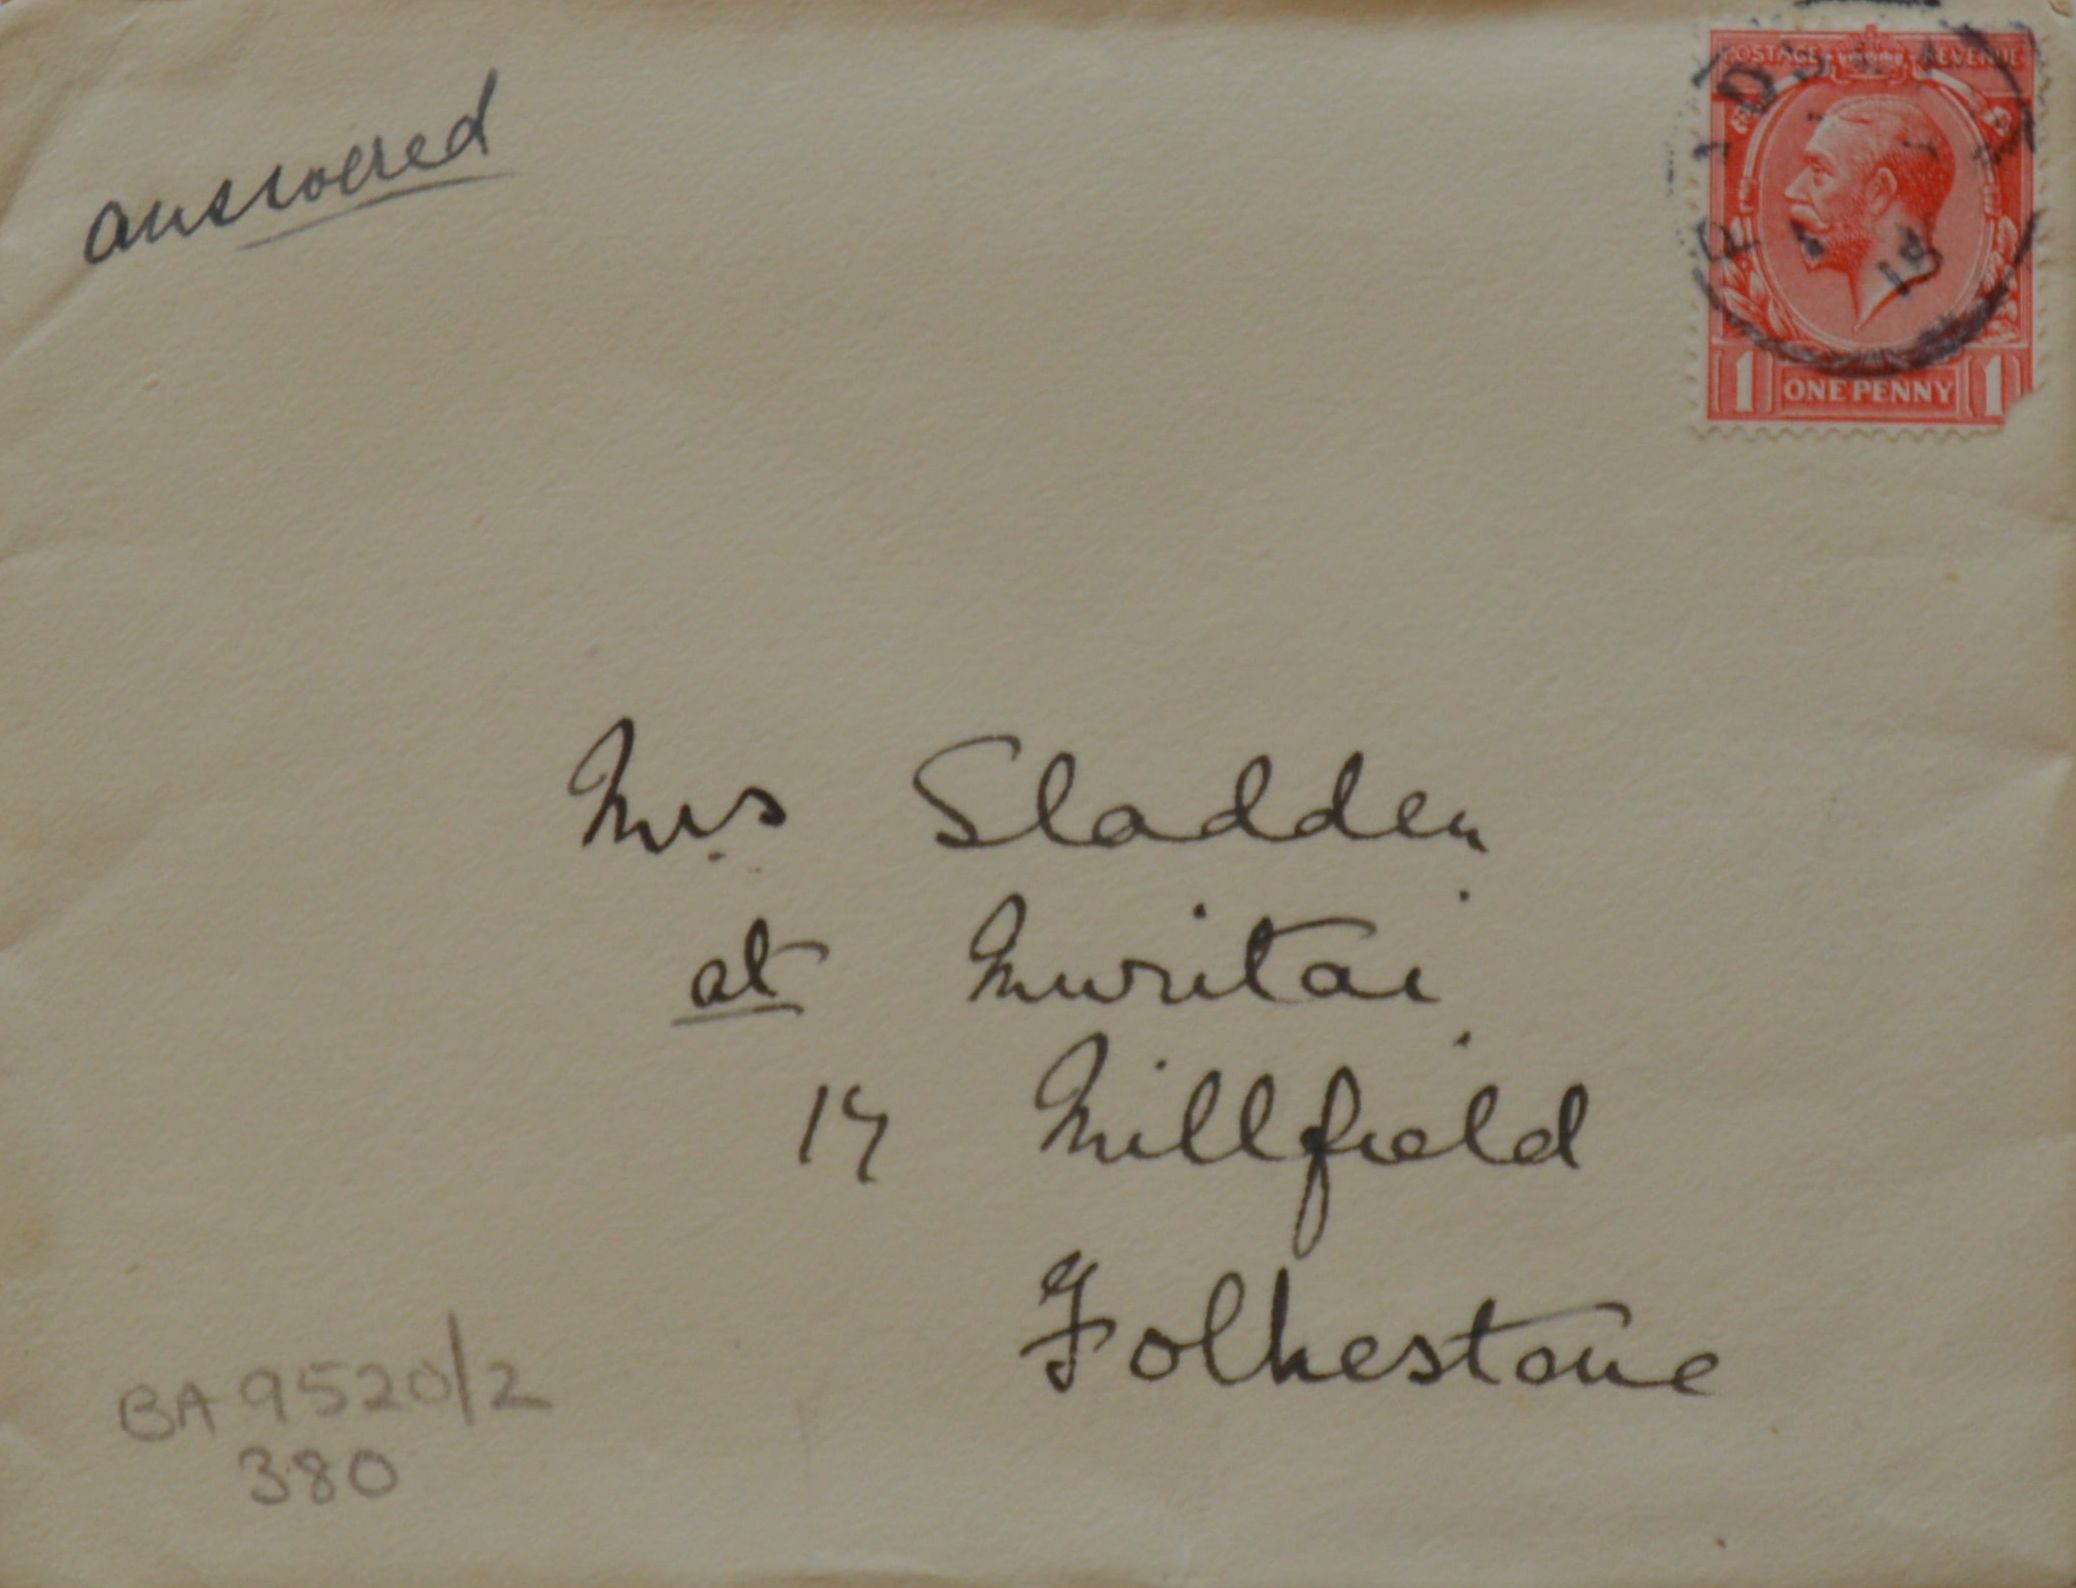 answered
POSTAGE REVENUE
15
1 ONE PENNY 1
Mrs Sladden
at Muritai
17 Millfield
Folkestone
BA 9520/2
380